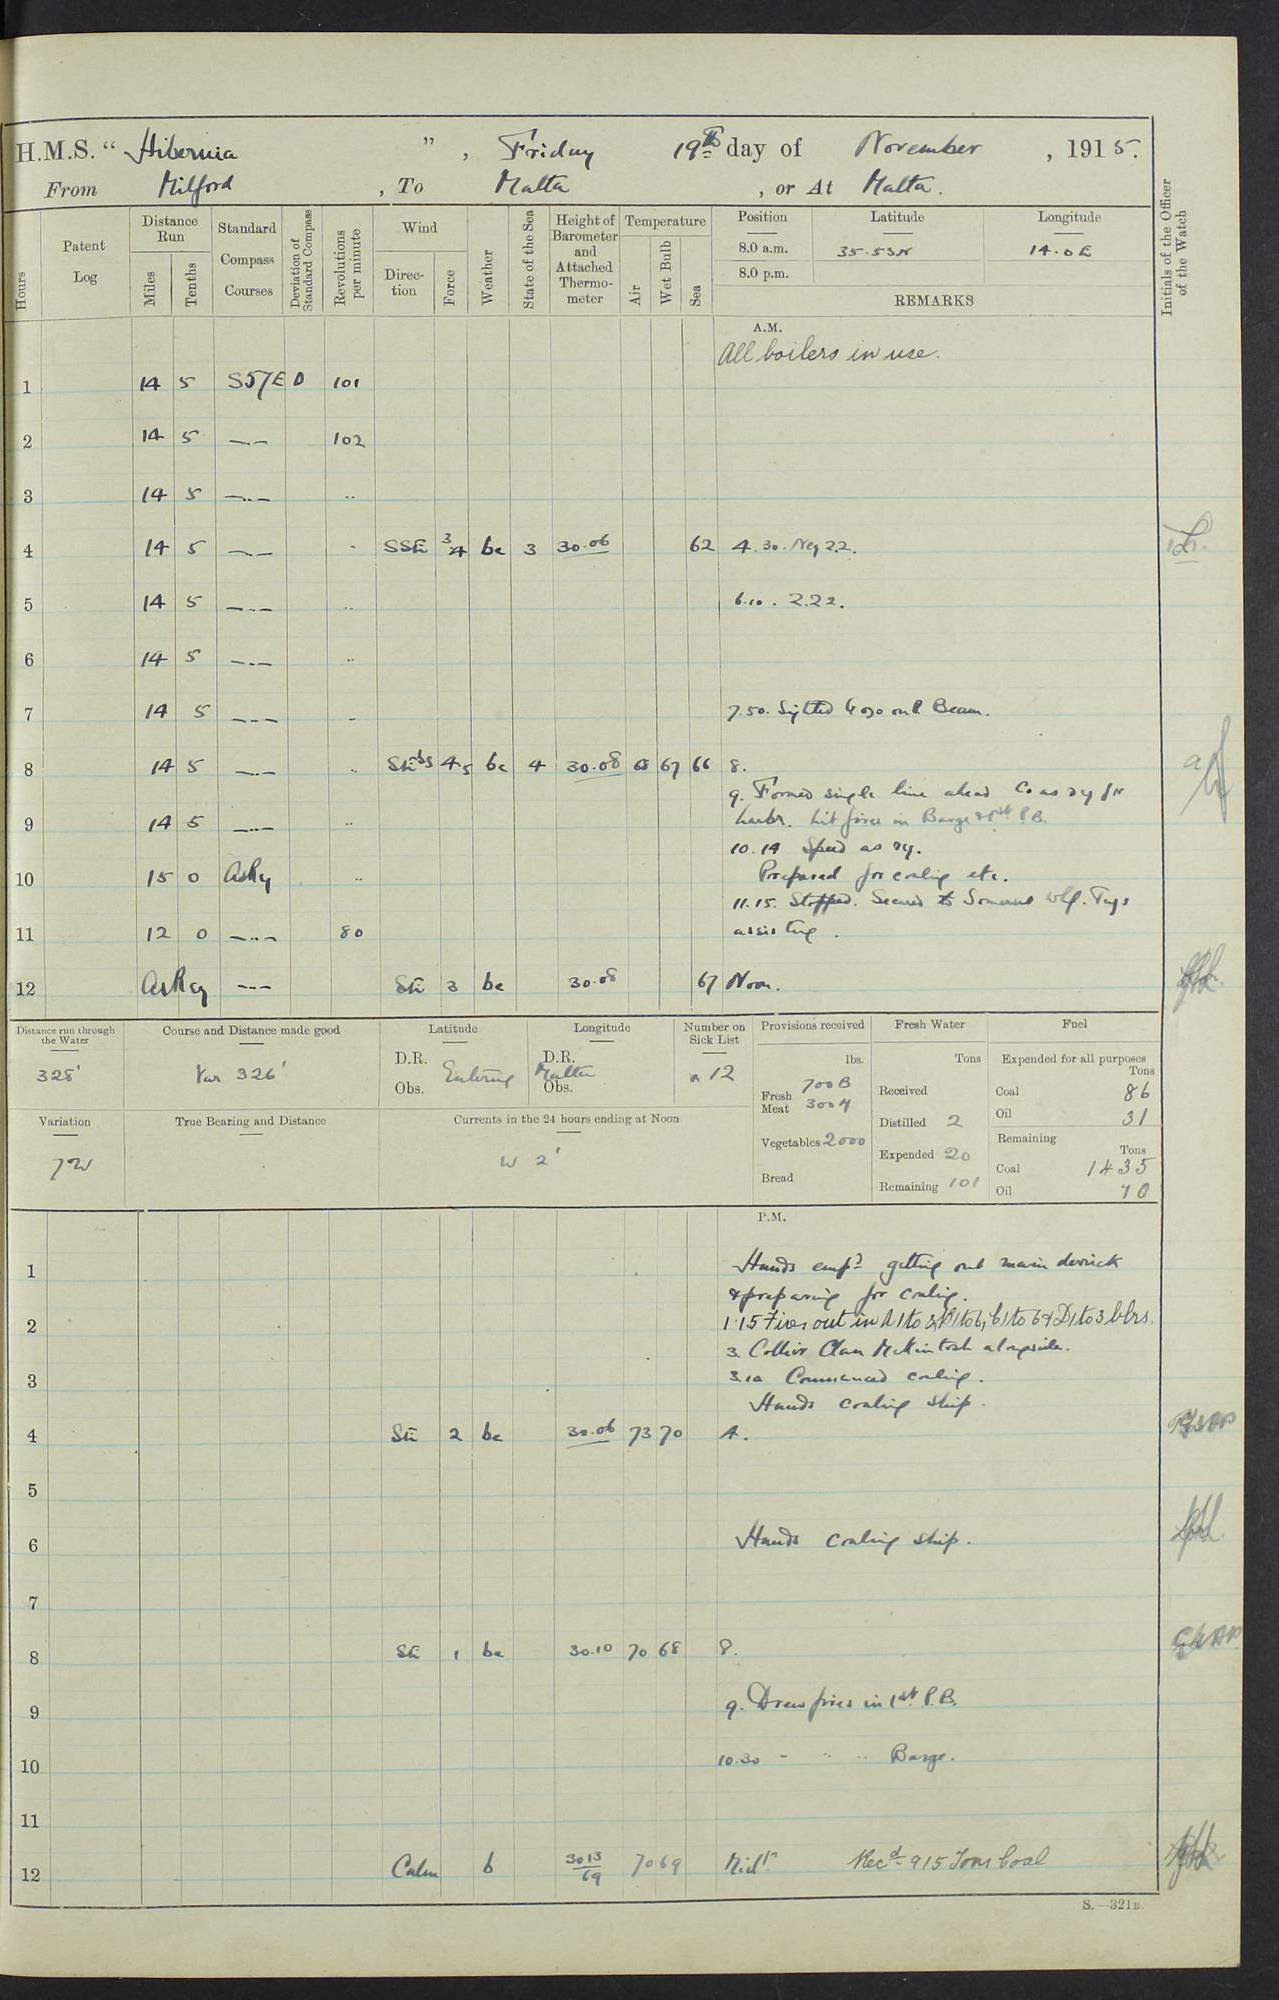 H.M.S. "Hibernia", Friday 19th day of November, 1915.
From Milford, To Malta, or At Malta.
Hours
Patent Log
Distance Run
Miles
Tenths
Standard Compass Courses
Deviation of Standard Compass
Revolutions per minute
Wind
Direction
Force
Weather
State of the Sea
Height of Barometer and Attached Thermometer
Temperature
Air
Wet Bulb
Sea
Position
Latitude
Longitude
8.0 a.m. 35.53N 14.0E
8.0 p.m.
REMARKS
Initials of the Officer of the Watch
A.M.
All boilers in use.
1 14 5 S57E 0 101
2 14 5 —.— 102
3 14 5 —..— ..
4 14 5 —..— - SSE 3/4 bc 3 30.06 62 4.30. Neg 22.
5 14 5 —..— .. 6.10. 2.22.
6 14 5 —..— ..
7 14 5 —..— - 7.50. Sighted Gozo on P. Beam.
8 14 5 —..— .. SEbS 4.5 bc 4 30.08 68 67 66 8.
9. Formed single line ahead Co as req for
9 14 5 —..— .. harbr. Lit fires in Barge & 1st P.B.
10.14 Speed as req.
10 15 0 AsReq .. Prepared for coaling etc.
11.15. Stopped. Secured to Somerset Whf. Tugs
11 12 0 —..— 80 assisting.
12 AsReq --- SE 3 bc 30.08 67 Noon.
Distance run through the Water
328'
Course and Distance made good
Var 326'
Latitude
D.R.
Obs.
Entering
Longitude
D.R.
Obs.
Malta
Number on Sick List
12
Provisions received
lbs.
Fresh Meat 700B
300M
Vegetables 2000
Bread
Fresh Water
Tons
Received
Distilled 2
Expended 20
Remaining 101
Fuel
Expended for all purposes
Tons
Coal 86
Oil 31
Remaining
Tons
Coal 1435
Oil 70
Variation
7W
True Bearing and Distance
Currents in the 24 hours ending at Noon
W 2'
P.M.
1 Hands empd getting out main derrick
& preparing for coaling.
2 1.15 Fires out in A1 to 3, B1 to 6, C1 to 6 & D1 to 3 blrs.
3. Collier Clan McKintosh alongside.
3 3.10 Commenced coaling.
Hands coaling ship.
4 SE 2 bc 30.06 73 70 4.
5
6 Hands coaling ship.
7
8 SE 1 bc 30.10 70 68 8.
9 9. Drew fires in 1st P.B.
10 10.30 - .. .. Barge.
11
12 Calm b 30.13/69 70 69 Midt. Recd 915 Tons Coal
S.—321B.